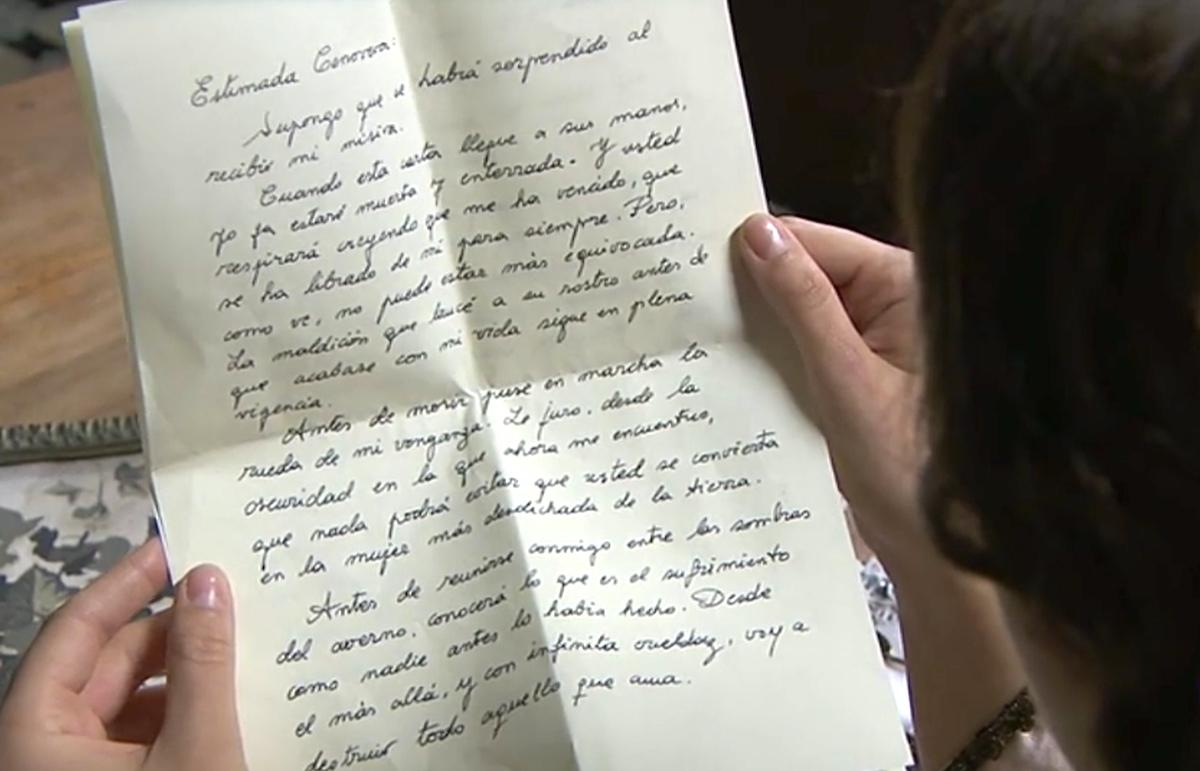 Estimada Genoveva:
Supongo que se habrá sorprendido al
recibir mi misiva.
Cuando esta carta llegue a sus manos,
yo ya estaré muerta y enterrada. Y usted
respirará creyendo que me ha vencido, que
se ha librado de mí para siempre. Pero,
como ve, no puede estar más equivocada.
La maldición que lancé a su rostro antes de
que acabase con mi vida sigue en plena
vigencia.
Antes de morir puse en marcha la
rueda de mi venganza. Le juro, desde la
oscuridad en la que ahora me encuentro,
que nada podrá evitar que usted se convierta
en la mujer más desdichada de la tierra.
Antes de reunirse conmigo entre las sombras
del averno, conocerá lo que es el sufrimiento
como nadie antes lo había hecho. Desde
el más allá, y con infinita crueldad, voy a
destruir todo aquello que ama.